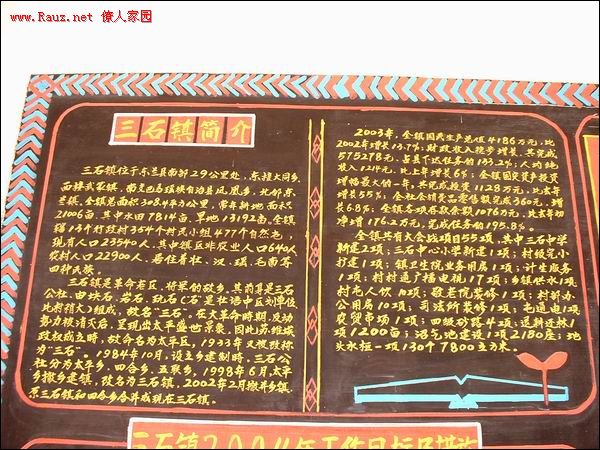 www.Rauz.net 僚人家园
三石镇简介
三石镇位于东兰县南部29公里处,东接大同乡,
西接武篆镇,南是巴马瑶族自治县凤凰乡,北邻东
兰镇,全镇总面积308.4平方公里,常年耕地面积
21106亩,其中水田7814亩,旱地13192亩,全镇
辖13个行政村354个村民小组477个自然屯,
现有人口23540人,其中镇区非农业人口640人,
农村人口22900人,居住着壮、汉、瑶、毛南等
四种民族。
三石镇是革命老区,将军的故乡,其前身是三石
公社,由块石、岩石、玩石(石是壮语中区划单位
比前指大)组成,故名“三石”。在大革命时期,反动
势力被清灭后,呈现出太平盛世景象,因此苏维埃
政权成立时,故命名为太平区,1933年又被改称
为“三石”。1984年10月,设立乡建制时,三石公
社分为太平乡、四合乡、五联乡,1998年6月,太平
乡撤乡建镇,改名为三石镇,2002年2月撤并乡镇,
原三石镇和四合乡合并成现在三石镇。
2003年,全镇国民生产总值4186万元,比
2002年增长13.7%;财政收入稳步增长,共完成
575278元,占县下达任务的133.2%;人均纯
收入1214元,比上年增长6%;全镇固定资产投资
增幅最大的一年,共完成投资1128万元,比去年
增长55%;全社会销费品零售额完成360元,增长
6.8%;全镇各项存款余额1076万元,比去年初
净增176.2万元,完成任务的195.8%。
全镇共有大会战项目55项,其中三石中学
新建2项;三石中心小学新建1项;村级完小
扩建1项;镇卫生院业务用房1项;计生服务
1项;村村通广播电视17项;乡镇供水1项
村屯人饮10项;敬老院装修1项;村部办
公用房10项;司法所装修1项;屯通电1项
农贸市场1项;四级砂路4项;退耕还林1
项1200亩;沼气池建设1项2180座;地
头水柜一项130个7800立方米。
三石镇2004年工作目标及措施